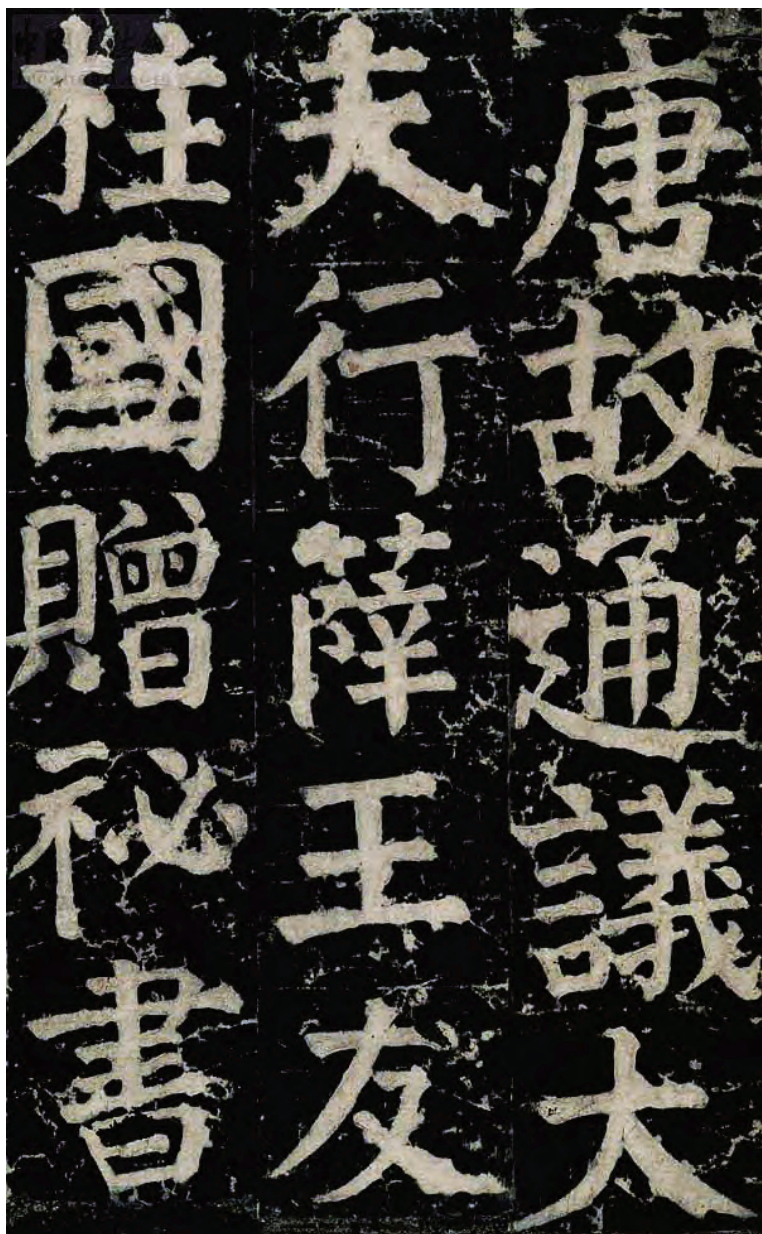 唐故通議太
夫行薛王友
柱國贈祕書